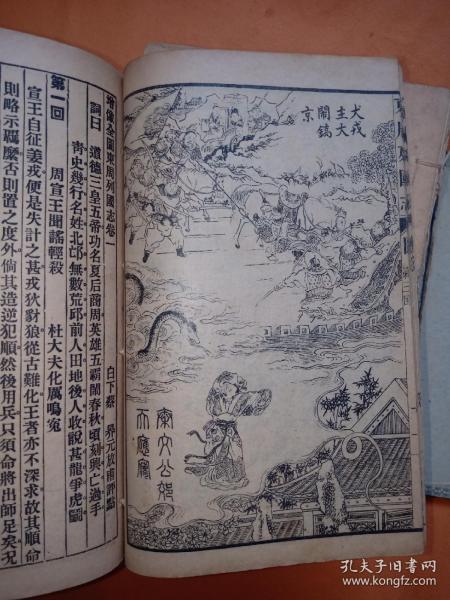 犬戎
主大
鬧鎬
京
秦文公郊
天應夢
增像全圖東周列國志卷一
白下蔡 昇元放甫評點
詞曰 道德三皇五帝功名夏后商周英雄五霸鬧春秋頃刻興亡過手
青史幾行名姓北邙無數荒邱前人田地後人收說甚龍爭虎鬬
第一回
周宣王聞謠輕殺 杜大夫化厲鳴冤
宣王自征姜戎便是失計之甚戎狄豺狼從古難化王者亦不深求故其順命
則略示羈縻否則置之度外倘其造逆犯順然後用兵只須命將出師足矣况
孔夫子旧书网
www.kongfz.com